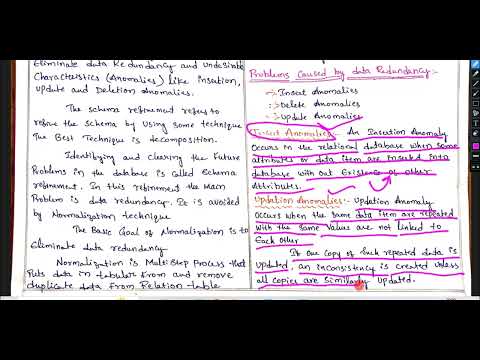 Eliminate data Redundancy and undesirable
Characteristics (Anomalies) like insertion,
update and Deletion Anomalies.
The schema refinement refers to
refine the schema by using some technique
The Best Technique is decomposition.
Identifying and clearing the Future
Problems in the database is called Schema
refinment. In this refinment the Main
Problem is data redundancy. It is avoided
by Normalization technique
The Basic Goal of Normalization is to
Eliminate data redundancy
Normalization is Multi Step Process that
Puts data in tabular from and remove
duplicate data from Relation table
Problems Caused by data Redundancy:-
→ Insert Anomalies
→ Delete Anomalies
→ Update Anomalies
Insert Anomalies:- An Insertion Anomaly
Occurs in the relational database when some
attributes or data item are Inserted into
database with out Existence of other
Attributes.
Updation Anomalies:- Updation Anomaly
Occurs when the same data item are repeated
With the same Value are not linked to
Each other
If one copy of such repeated data is
Updated, an inconsistency is created unless
all copies are Similarly Updated.